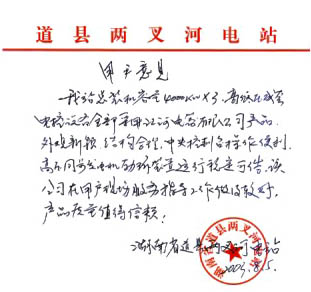 道县两叉河电站
用户意见
我站总装机容量4000KW×3，高低压成套
电控设备全部采用江河电器有限公司产品
外观新颖，结构合理，中央控制台操作便利，
高压同步发电机励磁装置运行稳定可信，该
公司在用户现场服务指导工作做得较好，
产品质量值得信赖！
湖南省道县两叉河电站
2003.8.15.